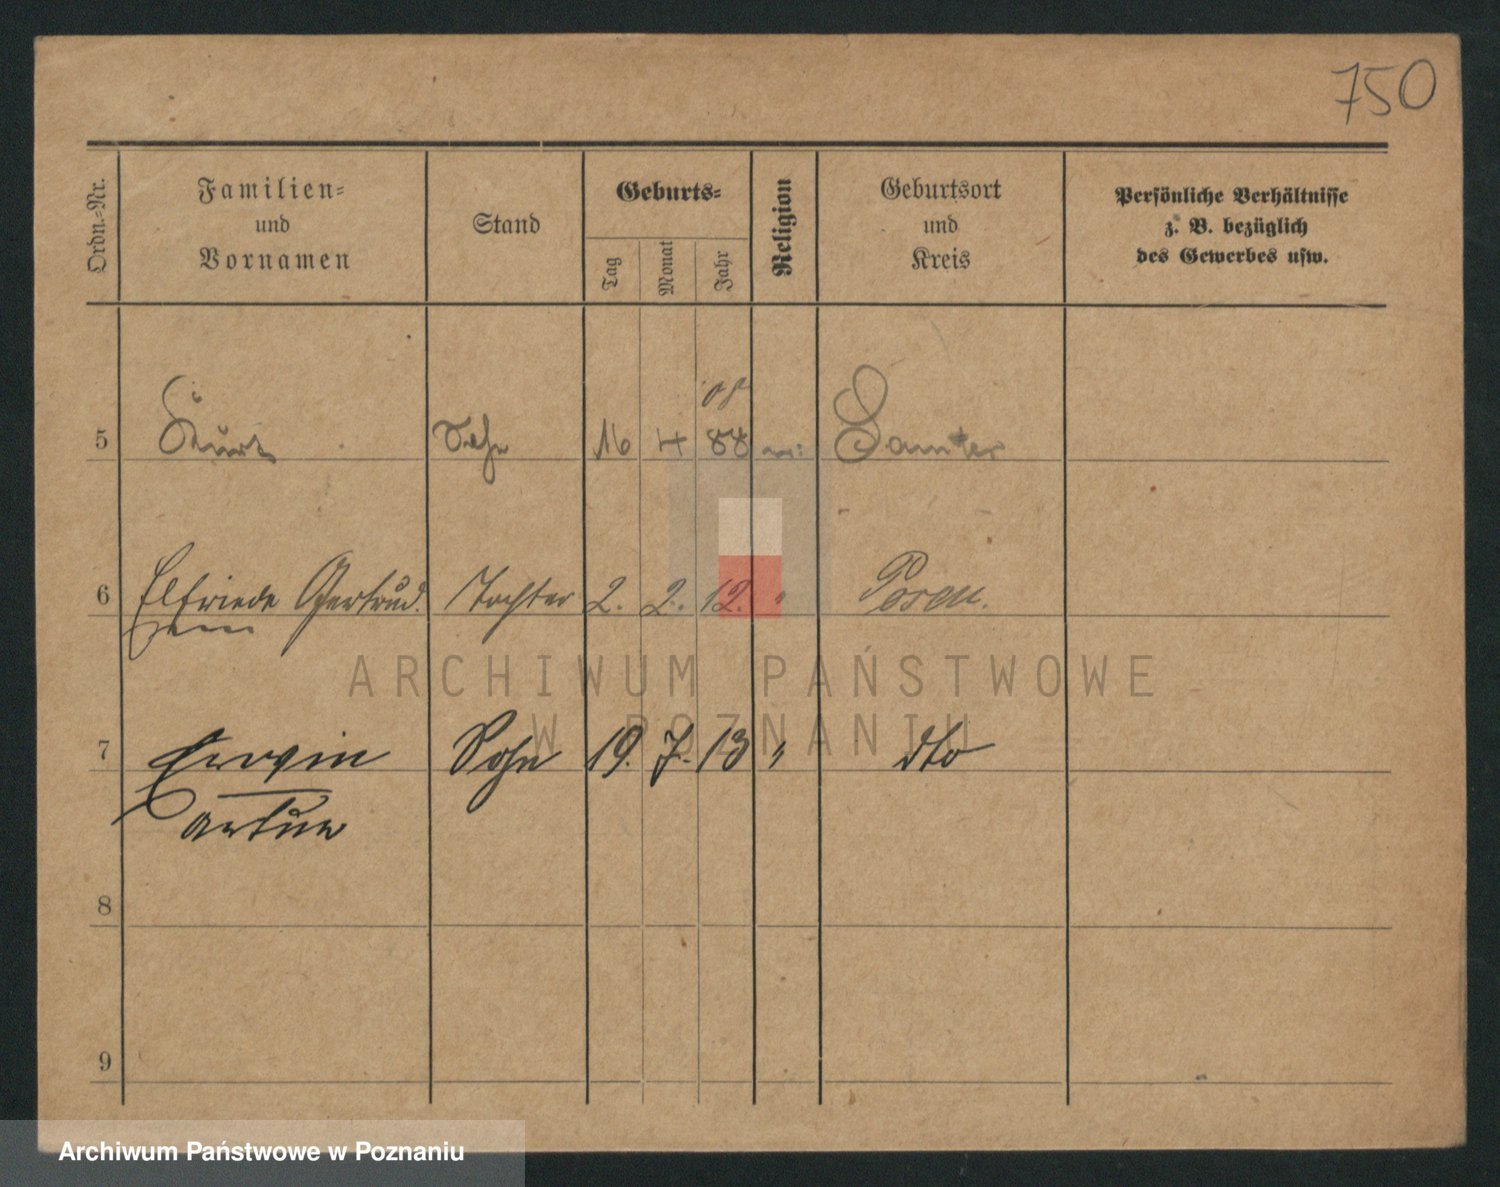 750
Ordn.-Nr.
Familien-
und
Vornamen
Stand
Geburts-
Tag
Monat
Jahr
Religion
Geburtsort
und
Kreis
Persönliche Verhältnisse
z. B. bezüglich
des Gewerbes usw.
08
5 Kurt Sohn 16 4 88 Samter
6 Elfriede Gertrud. Tochter 2. 2. 12. " Posen.
ARCHIWUM PAŃSTWOWE
W POZNANIU
7 Erwin Sohn 19. 7. 13 " dto
Artur
8
9
Archiwum Państwowe w Poznaniu